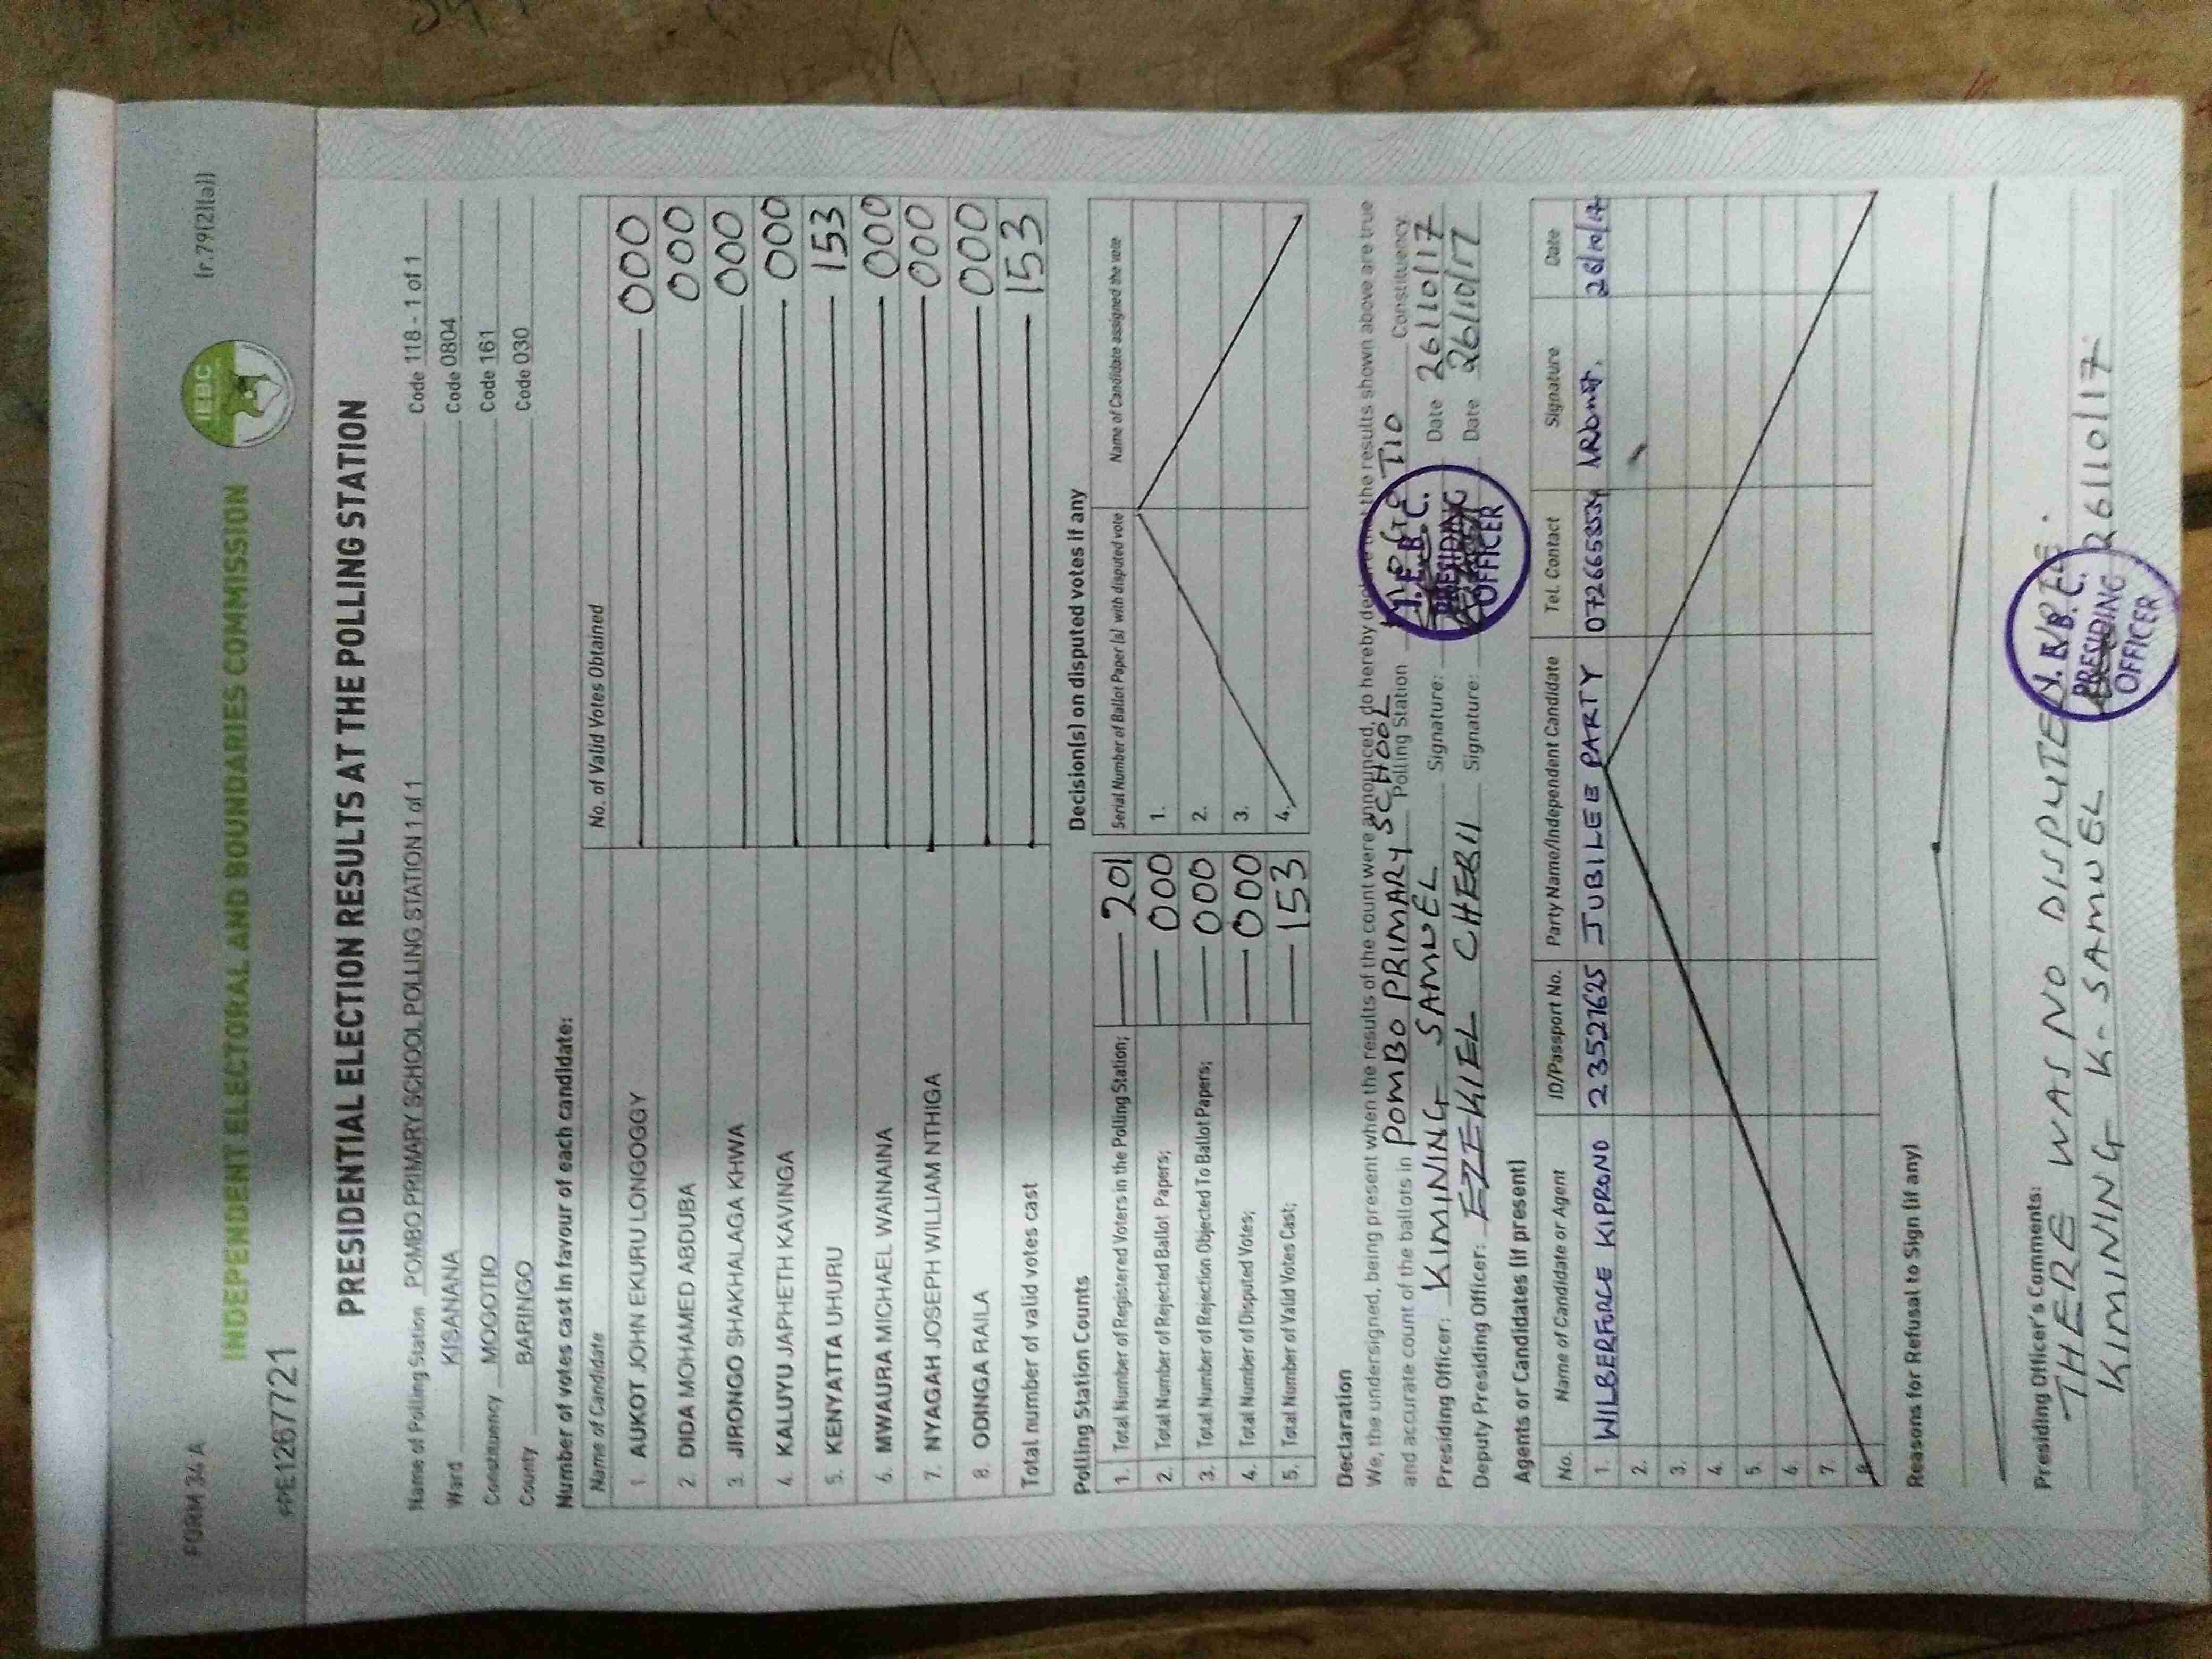 FORM 34A (r.79(2)(a))
IEBC
INDEPENDENT ELECTORAL AND BOUNDARIES COMMISSION
PRE1267721
PRESIDENTIAL ELECTION RESULTS AT THE POLLING STATION
Name of Polling Station POMBO PRIMARY SCHOOL POLLING STATION 1 of 1 Code 118 - 1 of 1
Ward KISANANA Code 0804
Constituency MOGOTIO Code 161
County BARINGO Code 030
Number of votes cast in favour of each candidate:
Name of Candidate No. of Valid Votes Obtained
1. AUKOT JOHN EKURU LONGOGGY 000
2. DIDA MOHAMED ABDUBA 000
3. JIRONGO SHAKHALAGA KHWA 000
4. KALUYU JAPHETH KAVINGA 000
5. KENYATTA UHURU 153
6. MWAURA MICHAEL WAINAINA 000
7. NYAGAH JOSEPH WILLIAM NTHIGA 000
8. ODINGA RAILA 000
Total number of valid votes cast 153
Polling Station Counts
1. Total Number of Registered Voters in the Polling Station; 201
2. Total Number of Rejected Ballot Papers; 000
3. Total Number of Rejection Objected To Ballot Papers; 000
4. Total Number of Disputed Votes; 000
5. Total Number of Valid Votes Cast; 153
Decision(s) on disputed votes if any
Serial Number of Ballot Paper (s) with disputed vote Name of Candidate assigned the vote
1.
2.
3.
4.
Declaration
We, the undersigned, being present when the results of the count were announced, do hereby declare that the results shown above are true
and accurate count of the ballots in POMBO PRIMARY SCHOOL Polling Station MOGOTIO Constituency
Presiding Officer: KIMINING SAMUEL Signature: Date 26/10/17
Deputy Presiding Officer: EZEKIEL CHEBII Signature: Date 26/10/17
I.E.B.C.
PRESIDING
OFFICER
Agents or Candidates (if present)
No. Name of Candidate or Agent ID/Passport No. Party Name/Independent Candidate Tel. Contact Signature Date
1. WILBERFORCE KIPRONO 23521625 JUBILEE PARTY 0726658534 26/10/17
2.
3.
4.
5.
6.
7.
8.
Reasons for Refusal to Sign (if any)
Presiding Officer's Comments:
THERE WAS NO DISPUTE
KIMINING K. SAMUEL 26/10/17
I.E.B.C.
PRESIDING
OFFICER